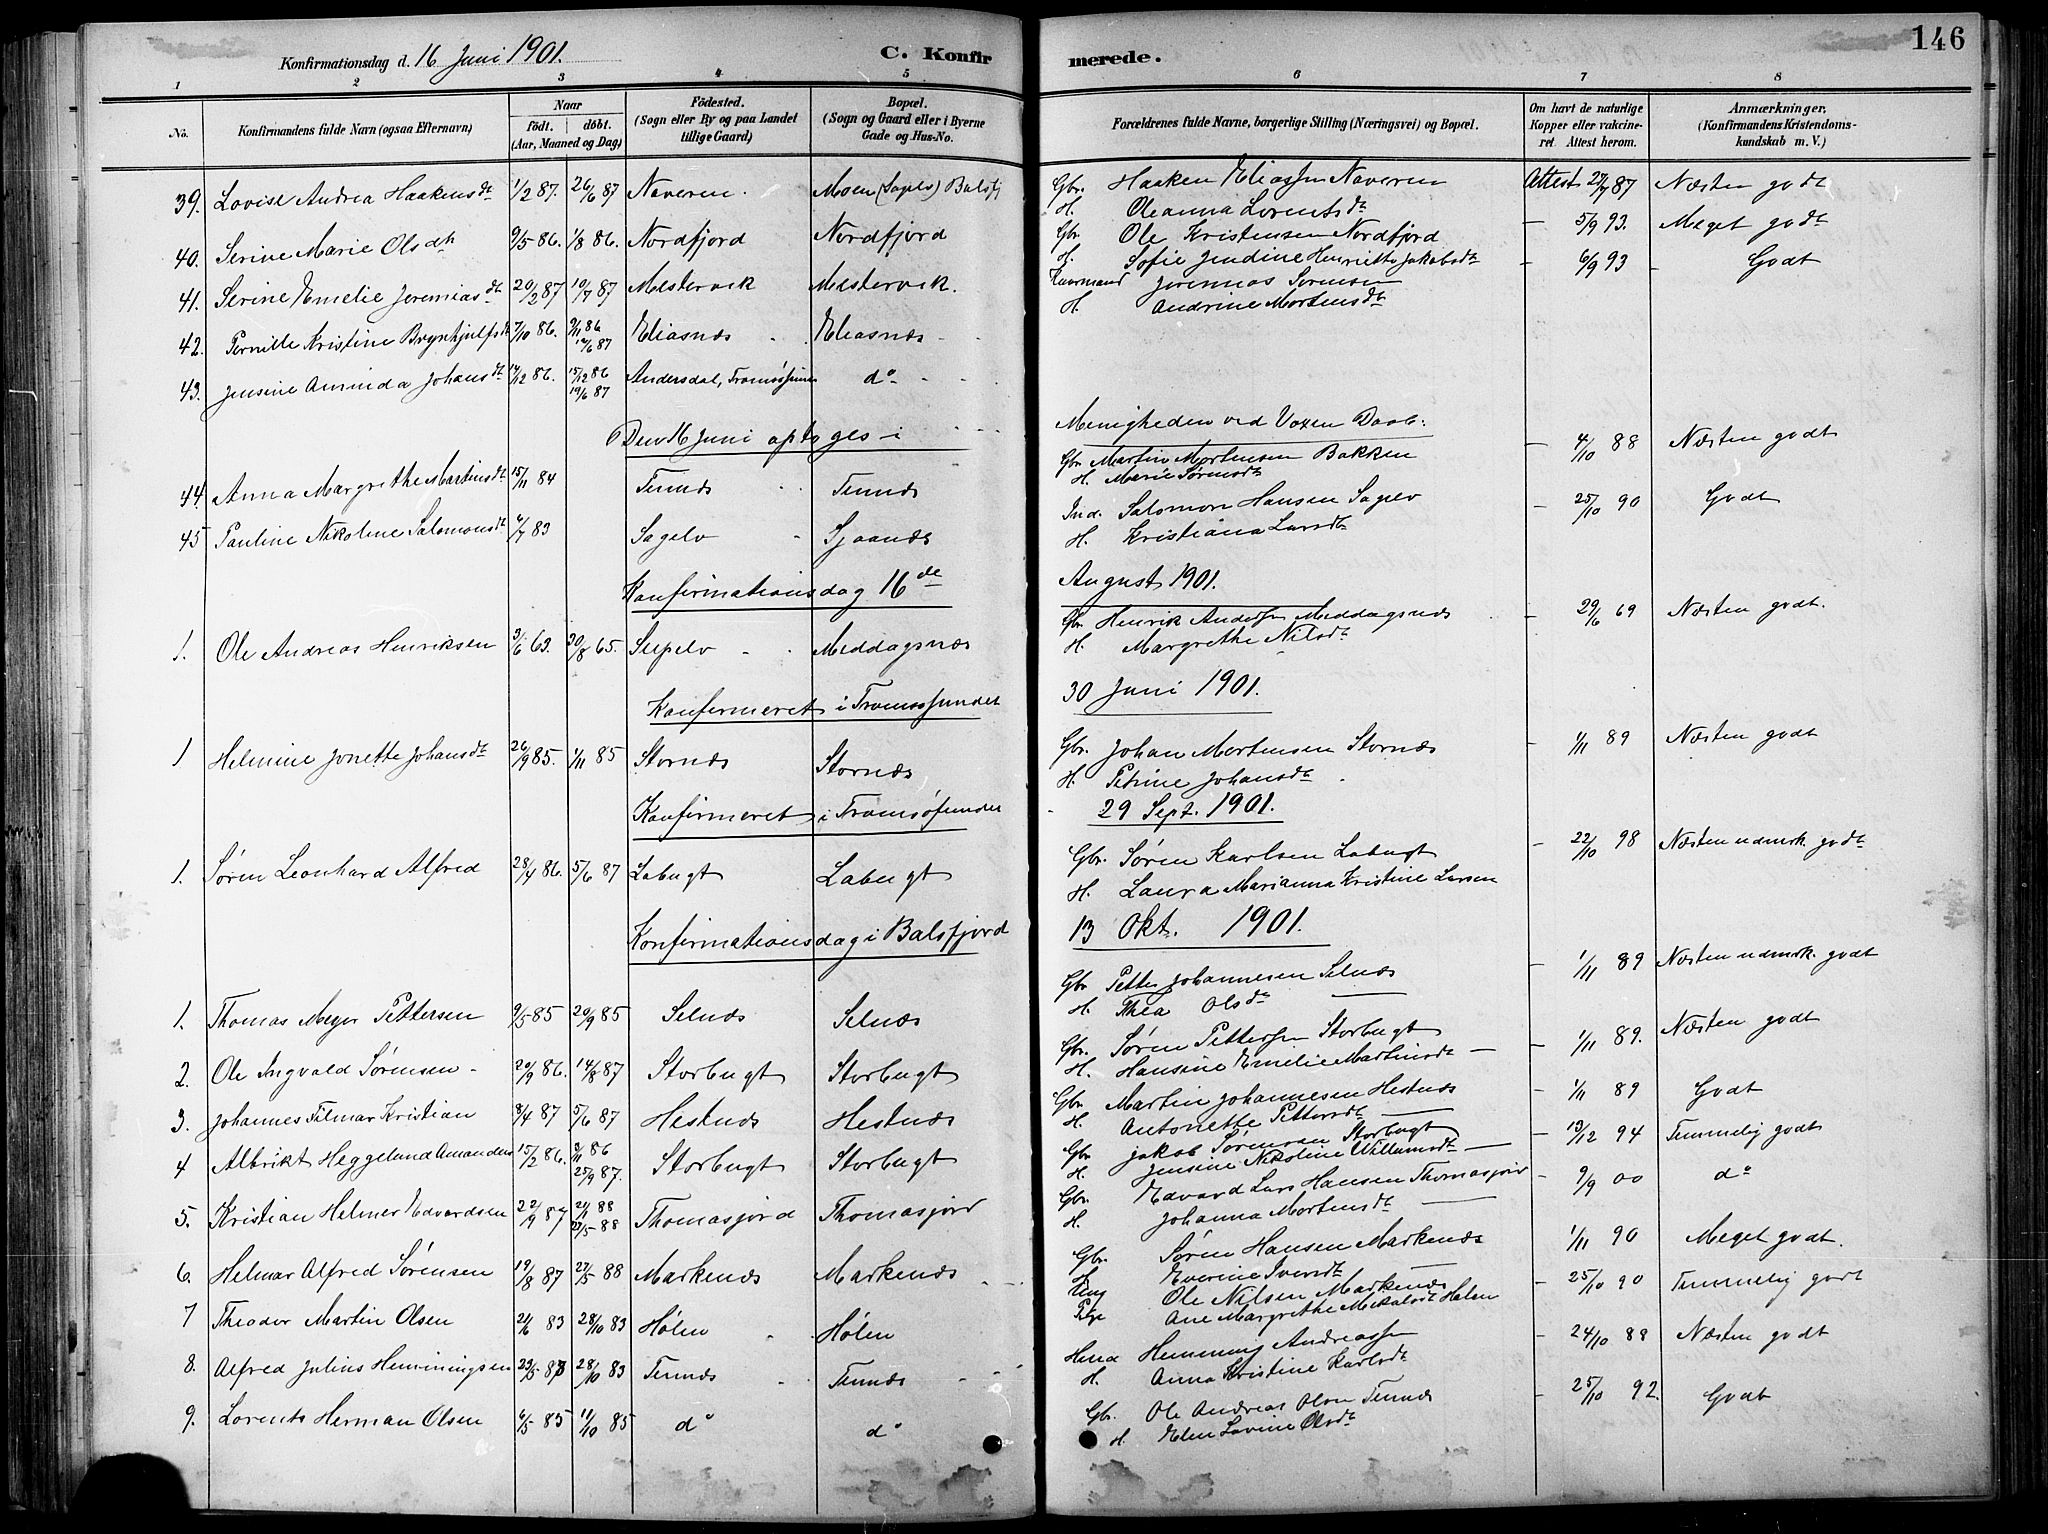 146
Konfirmationsdag d. 16 Juni 1901. C. Konfirmerede.
1 2 3 4 5 6 7 8
No. Konfirmandens fulde Navn (ogsaa Efternavn) Naar födt. döbt. (Aar, Maaned og Dag) Födested. (Sogn eller By og paa Landet tillige Gaard) Bopæl. (Sogn og Gaard eller i Byerne Gade og Hus-No. Forældrenes fulde Navne, borgerlige Stilling (Næringsvei) og Bopæl. Om havt de naturlige Kopper eller vakcineret. Attest herom. Anmærkninger, (Konfirmandens Kristendomskundskab m. V.)
39. Lovise Andrea Haakensdt 1/2 87. 26/6 87 Naveren. Moen (Sagelv) Balsfj Gbr. Haaken Eliassen Naveren Attest 27/7 87 Næsten godt
H. Oleanna Lorentsdt
40. Serine Marie Olsdtr 9/5 86. 1/8 86. Nordfjord Nordfjord Gbr. Ole Kristensen Nordfjord - 5/9 93. Meget godt
H. Sofie Jendine Henriette Jakobsdt
41. Serine Emelie Jeremiasdt 20/2 87 10/7 87 Mestervik Mestervik. Jeremias Sørensen - 6/9 93 - Godt
H. Andrine Mortensdt
42. Pernille Kristine Brynhjulfsdt 7/10 86. 9/11 86 12/6 87 Eliasnæs Eliasnæs
43. Jensine Aminda Johansdt 14/12 86. 15/12 86 19/6 87 Andersdal, Tromsøsund do
Den 16 Juni optoges i Menigheden ved Voxen Daab:
44. Anna Margrethe Martinsdt 15/11 84 Tennes Tennes Gbr Martin Mortensen Bakken - 4/10 88 Næsten godt
H. Marie Sørensdt
45 Pauline Nikoline Salomonsdt. 6/7 83 Sagelv Sjaanes Ind. Salomon Hansen Sagelv - 25/10 90 Godt
H. Kristiana Larsdt
Konfirmationsdag 16de August 1901.
1. Ole Andreas Henriksen 3/6 63. 30/8 65. Seljelv Meddagsnæs Gbr Henrik Anderssen Meddagsnæs - 29/6 69 Næsten godt.
H. Margrethe Nilsdt
Konfirmeret i Tromsøsundet 30 Juni 1901.
1 Helmine Jonette Johansdt 26/9 85. 1/11 85 Stornæs Stornæs Gbr. Johan Mortensen Stornæs - 1/11 89 Næsten godt
H. Petrine Johansdt
Konfirmeret i Tromsøsundet 29 Sept. 1901.
1. Søren Leonhard Alfred 28/4 86. 5/6 87 Labugt Labugt Gbr. Søren Karlsen Labugt - 22/10 98 Næsten udmrk. godt
H. Laura Marianna Kristine Larsen
Konfirmationsdag i Balsfjord 13 Okt. 1901.
1. Thomas Meyer Pettersen 9/5 85 20/9 85 Selnæs Selnæs Gbr Petter Johannesen Selnæs - 1/11 89 Næsten udmrk. godt
H. Thea Olsdt
2. Ole Ingvald Sørensen - 20/9 86. 14/8 87 Storbugt Storbugt Gbr. Søren Pettersen Storbugt - 1/11 89. Næsten godt
H. Hansine Emelie Martinsdt -
3. Johannes Tilmar Kristian 8/4 87 5/6 87 Hestnæs Hestnæs Gbr. Martin Johannesen Hestnæs - 1/11 89 Godt
H. Antonette Pettersdt
4 Albrikt Heggelund Amandus 15/2 86. 2/11 86 25/9 87. Storbugt Storbugt Gbr Jakob Sørensen Storbugt - 13/12 94 Temmelig godt
H. Jensine Nikoline Willumsdt -
5. Kristian Helmer Edvardsen 22/9 87 21/1 88 27/5 88 Thomasjord Thomasjord Gbr. Edvard Lars Hansen Thomasjord - 9/9 00 do
H. Johanna Mortensdt
6. Helmar Alfred Sørensen 19/8 87 27/5 88 Markenæs Markenæs Gbr. Søren Hansen Markenæs 1/11 90 Meget godt.
H. Everine Iversdt
7 Theodor Martin Olsen 21/6 83 28/10 83 Hølen Hølen Ung Ole Nilsen Markenæs - 25/10 90 Temmelig godt
Pige Ane Margrethe Mikalsdt Hølen
8. Alfred Julius Hemmingsen 29/5 83 28/10 83 Tennes Tennes Hemming Andreassen - 24/10 89 Næsten godt
H. Anna Kristine Karlsdt
9. Lorents Herman Olsen 6/5 85 11/10 85 do do Gbr. Ole Andreas Olsen Tennes - 25/10 92. Godt
H. Elen Lovine Olsdt